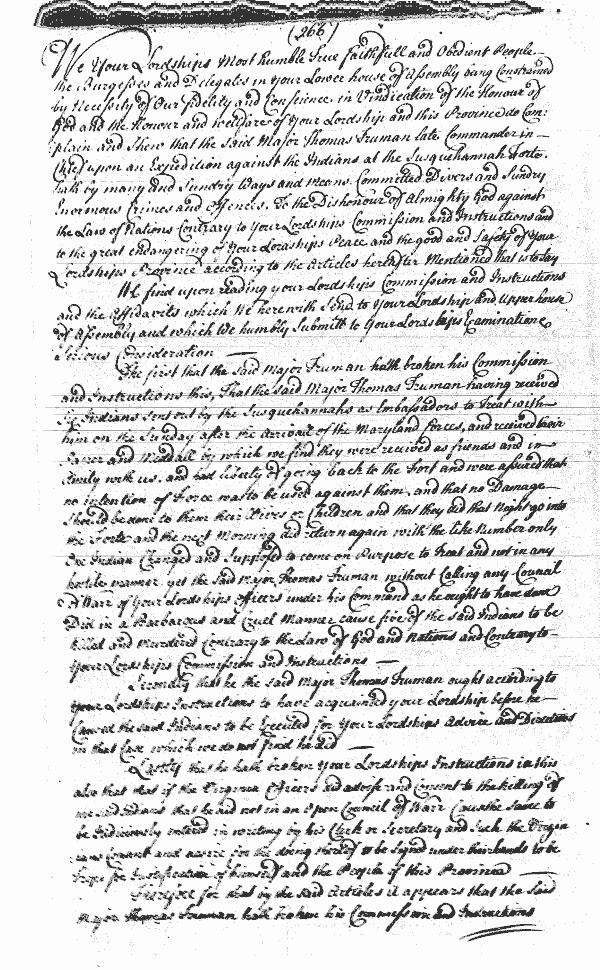 (266)
We Your Lordships Most humble True faithfull and Obedient People
the Burgesses and Delegates in Your Lower house of Assembly being Constrained
by Necessity of Our fidelity and Conscience in Vindication of the Honour of
God and the Honour and wellfare of Your Lordship and this Province do Com:
plain and Shew that the Said Major Thomas Truman late Commander in
Chief upon an Expedition against the Indians at the Susquehannah Forte
hath by many and Sundry Ways and means Committed Divers and Sundry
Enormous Crimes and offences To the Dishonour of Almighty God against
the Law of Nations Contrary to Your Lordships Commission and Instructions and
to the great endangering of Your Lordships Peace and the good and Safety of Your
Lordships Province according to the Articles hereafter Mentioned that is to Say
We find upon reading Your Lordships Commission and Instructions
and the Affidavits which We herewith Send to Your Lordship and Upper house
of Assembly and which We humbly Submitt to Your Lordships Examination
Serious Consideration
The first that the Said Major Truman hath broken his Commission
and Instructions this, That the said Major Thomas Truman having received
Indians Sent out by the Susquehannahs as Embassadors to Treat with
him on the Sunday after the Arrivall of the Maryland forces, and received their
Paper and Meddall by which we find they were received as friends and in
Amity with us, and had liberty of going back to the Fort and were assured that
no intention of Force was to be used against them, and that no Damage
Should be done to them their Wives or Children and that they did that Night go into
the Forte and the next Morning did return again with the like Number only
One Indian Changed and Supposed to come on Purpose to Treat and not in any
hostile manner yet the Said Major Thomas Truman without Calling any Council
of Warr of Your Lordships officers under his Command as he ought to have done
Did in a Barbarous and Cruel Manner cause five of the Said Indians to be
killed and murdered Contrary to the Law of God and Nations and Contrary to
Your Lordships Commission and Instructions
Secondly that he the said Major Thomas Truman ought according to
Your Lordships Instructions to have acquainted your Lordship before he
Caused the said Indians to be Executed for Your Lordships Advice and Directions
in that Case which we do not find he did
Lastly that he hath broken Your Lordships Instructions in this
also that if the Virginia Officers did advise and Consent to the killing of
the said Indians that he did not in an Open Council of Warr Cause the Same to
be Judiciously entered in writing by his Clerk or Secretary and Such the Virgin
ians Consent and advice for the doing thereof to be Signed under their hands to be
kept for Justification of himself and the People of this Province
Therefore for that by the Said Articles it appears that the Said
Major Thomas Truman hath broken his Commission and Instructions